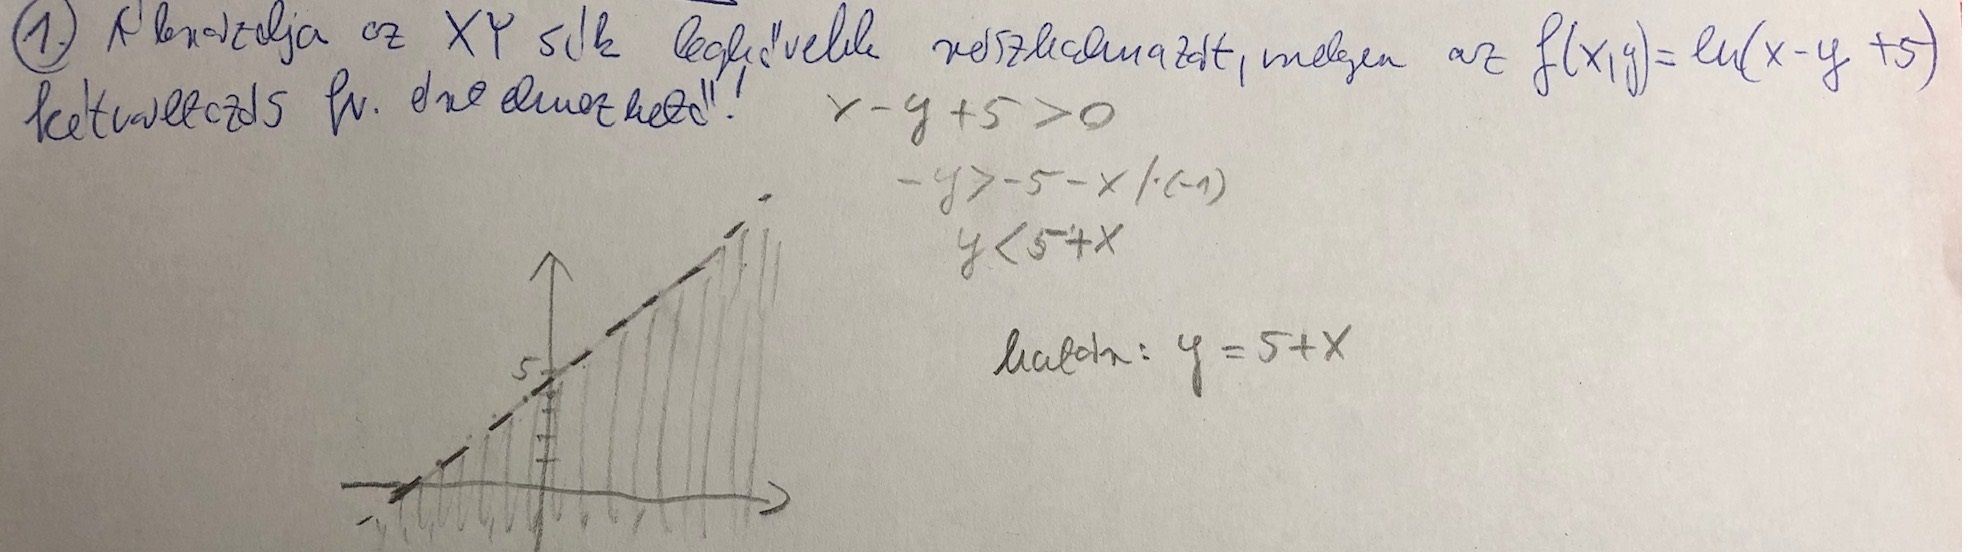 1. Ábrázolja az XY sík legbővebb részhalmazát, melyen az f(x,y)=ln(x-y+5)
kétváltozós fv. értelmezhető!
x-y+5>0
-y>-5-x /·(-1)
y<5+x
5
határ: y=5+x